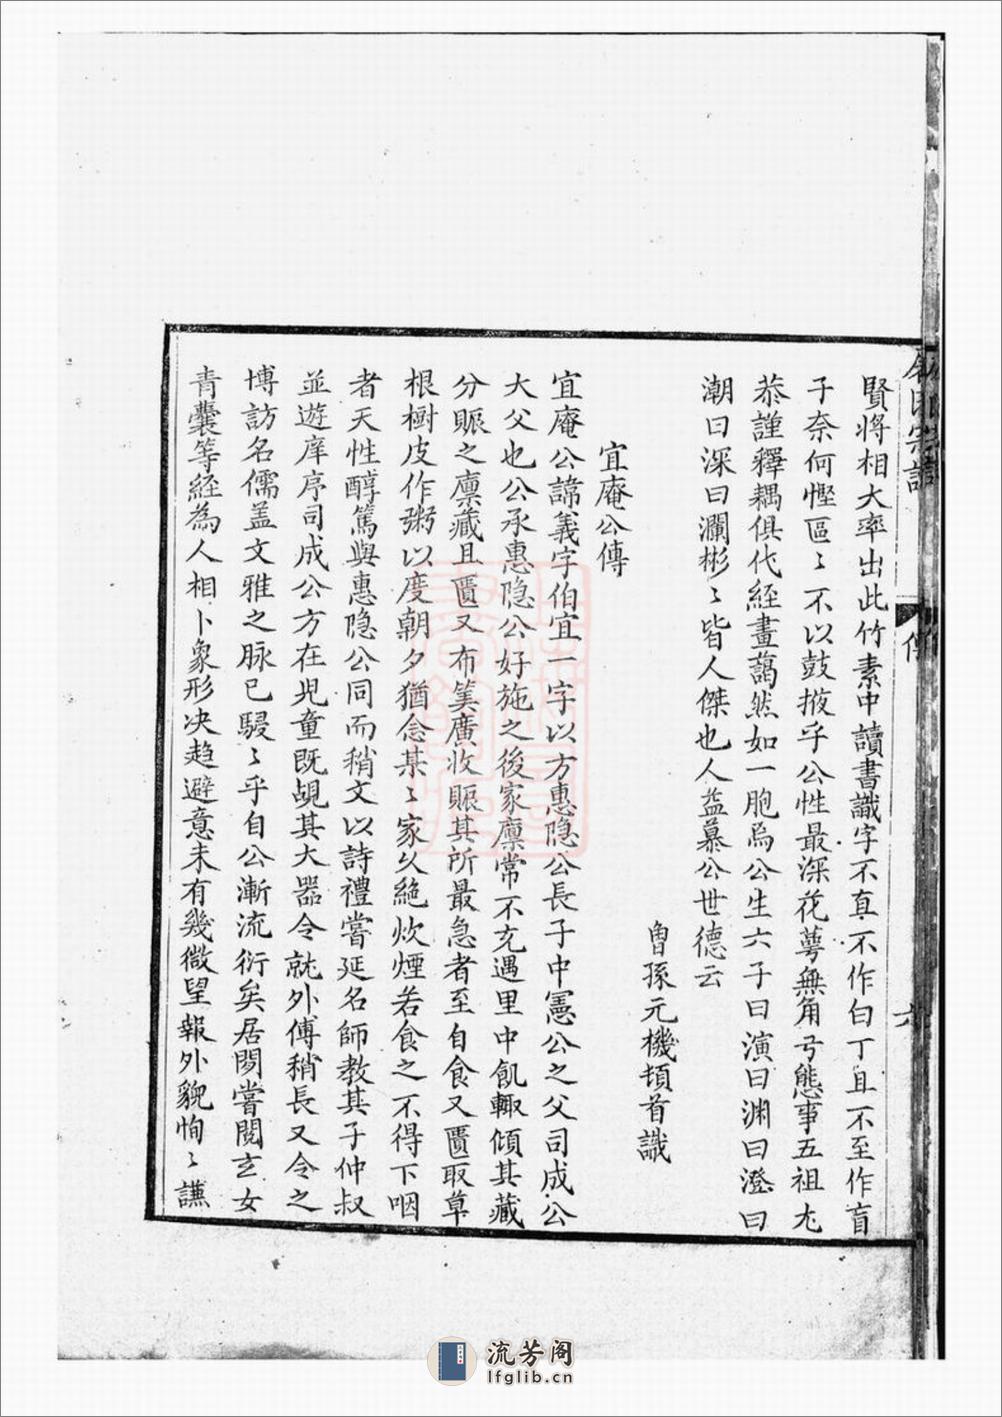 賢將相大率出此竹素中讀書識字不真不作白丁且不至作盲
子奈何慳區〻不以鼓掖乎公性最深花萼無角弓態事五祖尤
恭謹釋耦俱代經畫藹然如一胞焉公生六子曰演曰渊曰澄曰
潮曰深曰瀾彬〻皆人傑也人益慕公世德云
曾孫元機頓首識
宜庵公傳
宜庵公諱義字伯宜一字以方惠隐公長子中憲公之父司成公
大父也公承惠隐公好施之後家廪常不充遇里中飢輙傾其藏
分賑之廪藏且匱又布筭廣收賑其所最急者至自食又匱取草
根樹皮作粥以度朝夕猶念某〻家乆絶炊煙若食之不得下咽
者天性醇篤與惠隐公同而稍文以詩禮嘗延名師教其子仲叔
並遊庠序司成公方在児童既覘其大器令就外傅稍長又令之
博訪名儒盖文雅之脉已駸〻乎自公漸流衍矣居閒嘗閱玄女
青囊等經為人相卜象形决趋避意未有幾微望報外貌恂〻謙
宗譜
傳
六
流芳阁
lfglib.cn